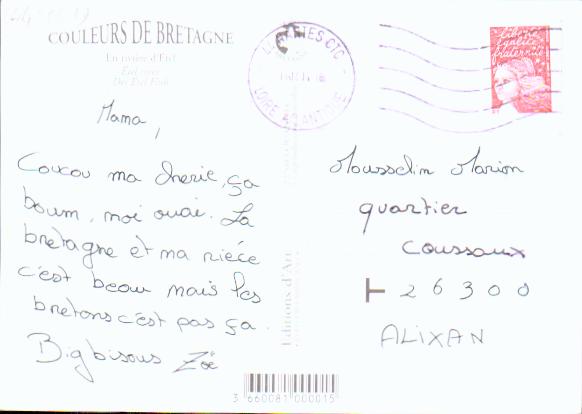 COULEURS DE BRETAGNE
En rivière d'Etel
Etel river
Der Etel Fluß
Mama,
Coucou ma cherie, ça
boum, moi ouai. La
bretagne et ma nièce
c'est beau mais les
bretons c'est pas ça.
Big bisous Zoë
Editions d'Art
3 660081 000015
NANTES CTC
LOIRE ATLANTIQUE
liberté
égalité
fraternité
Mousselin Marion
quartier
Coussaux
26300
ALIXAN